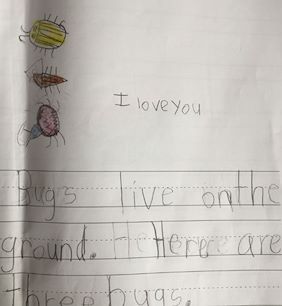 I love you
Bugs live on the
ground. Here are
three bugs.